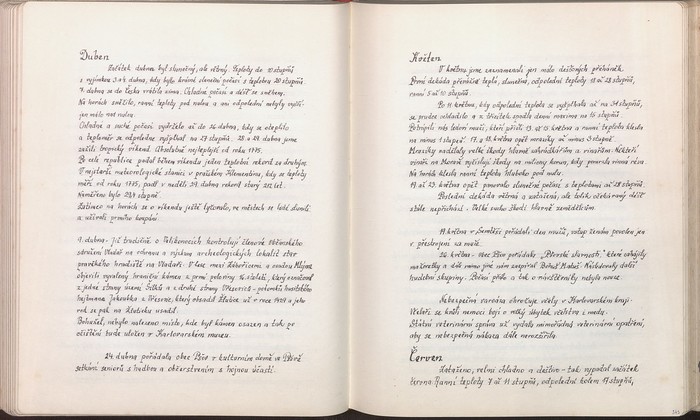 Duben
Začátek dubna byl slunečný, ale větrný. Teploty do 10 stupňů
s výjimkou 3. a 4. dubna, kdy bylo krásné sluneční počasí s teplotou 20 stupňů.
7. dubna se do Česka vrátila zima. Chladné počasí a déšť se sněhem.
Na horách sněžilo, ranní teploty pod nulou a ani odpolední nebyly vyšší
jen málo nad nulou.
Chladné a suché počasí vydrželo až do 26. dubna, kdy se oteplilo
a teploměr se odpoledne vyšplhal na 27 stupňů. 28. a 29. dubna jsme
zažili tropický víkend. Absolutně nejteplejší od roku 1775.
Po celé republice padal během víkendu jeden teplotní rekord za druhým.
V nejstarší meteorologické stanici v pražském Klementinu, kdy se teploty
měří od roku 1775, padl v neděli 29. dubna rekord starý 212 let.
Naměřeno bylo stupně.
Zatímco na horách se o víkendu ještě lyžovalo, ve městech se lidé slunili
a užívali prvního koupání.
9. dubna - Již tradičně o Velikonocích kontrolují členové Občanského
sdružení Vladař na ochranu a výzkum archeologických lokalit stav
pravěkého hradiště na Vladaři. V lese mezi Záhořicemi a osadou Mlýnce
objevili vyvalený hraniční kámen z první poloviny 16. století, který označoval
z jedné strany území Šliků a z druhé strany Vřesoviců - potomků husitského
hejtmana Jakoubka z Vřesovic, který obsadil Žlutice už v roce 1428 a jeho
rod se pak na Žluticku usadil.
Bohužel, nebylo nalezeno místo, kde byl kámen osazen a tak po
očištění bude uložen v Karlovarském muzeu.
24. dubna pořádala obec Pšov v kulturním domě ve Pšově
setkání seniorů s hudbou a občerstvením s hojnou účastí.
Květen
V květnu jsme zaznamenali jen málo dešťových přeháněk.
První dekáda převážně teplá, slunečná, odpolední teploty 18 až 23 stupňů,
ranní 5 až 10 stupňů.
Po 11. květnu, kdy odpolední teplota se vyšplhala až na 31 stupňů,
se prudce ochladilo a z třicítek spadla denní maxima na 15 stupňů.
Potrápili nás ledoví muži, kteří přišli 13. až 15. května a ranní teplota klesla
na mínus 1 stupeň. 17. a 18. květen opět mrazíky až mínus 3 stupně.
Mrazíky nadělaly velké škody hlavně zahrádkářům a vinařům. Někteří
vinaři na Moravě vyčíslují škody na miliony korun, kdy pomrzla vinná réva.
Na horách klesla ranní teplota hluboko pod nulu.
19. až 22. května opět panovalo slunečné počasí s teplotami až 28 stupňů.
Poslední dekáda větrná a zatažená, ale toliko očekávaný déšť
stále nepřichází. Velké sucho škodí hlavně zemědělcům.
19. května v Semtěši pořádali den mužů, vstup ženám povolen jen
v přestrojení za muže.
26. května - obec Pšov pořádala „Pšovské slavnosti", které zahájily
mažoretky a dále mimo jiné nám zazpíval Bohuš Matuš. Následovaly další
hudební skupiny. Pěkné přálo a tak o návštěvníky nebyla nouze.
Nebezpečná varoáza ohrožuje včely v Karlovarském kraji.
Včelaři se kvůli nemoci bojí o velký úbytek včelstva i medu.
Státní veterinární správa už vydala mimořádná veterinární opatření,
aby se nebezpečná nákaza dále nerozšířila.
Červen
Zataženo, velmi chladno a deštivo - tak vypadal začátek
června. Ranní teploty 7 až 11 stupňů, odpolední kolem 17 stupňů,